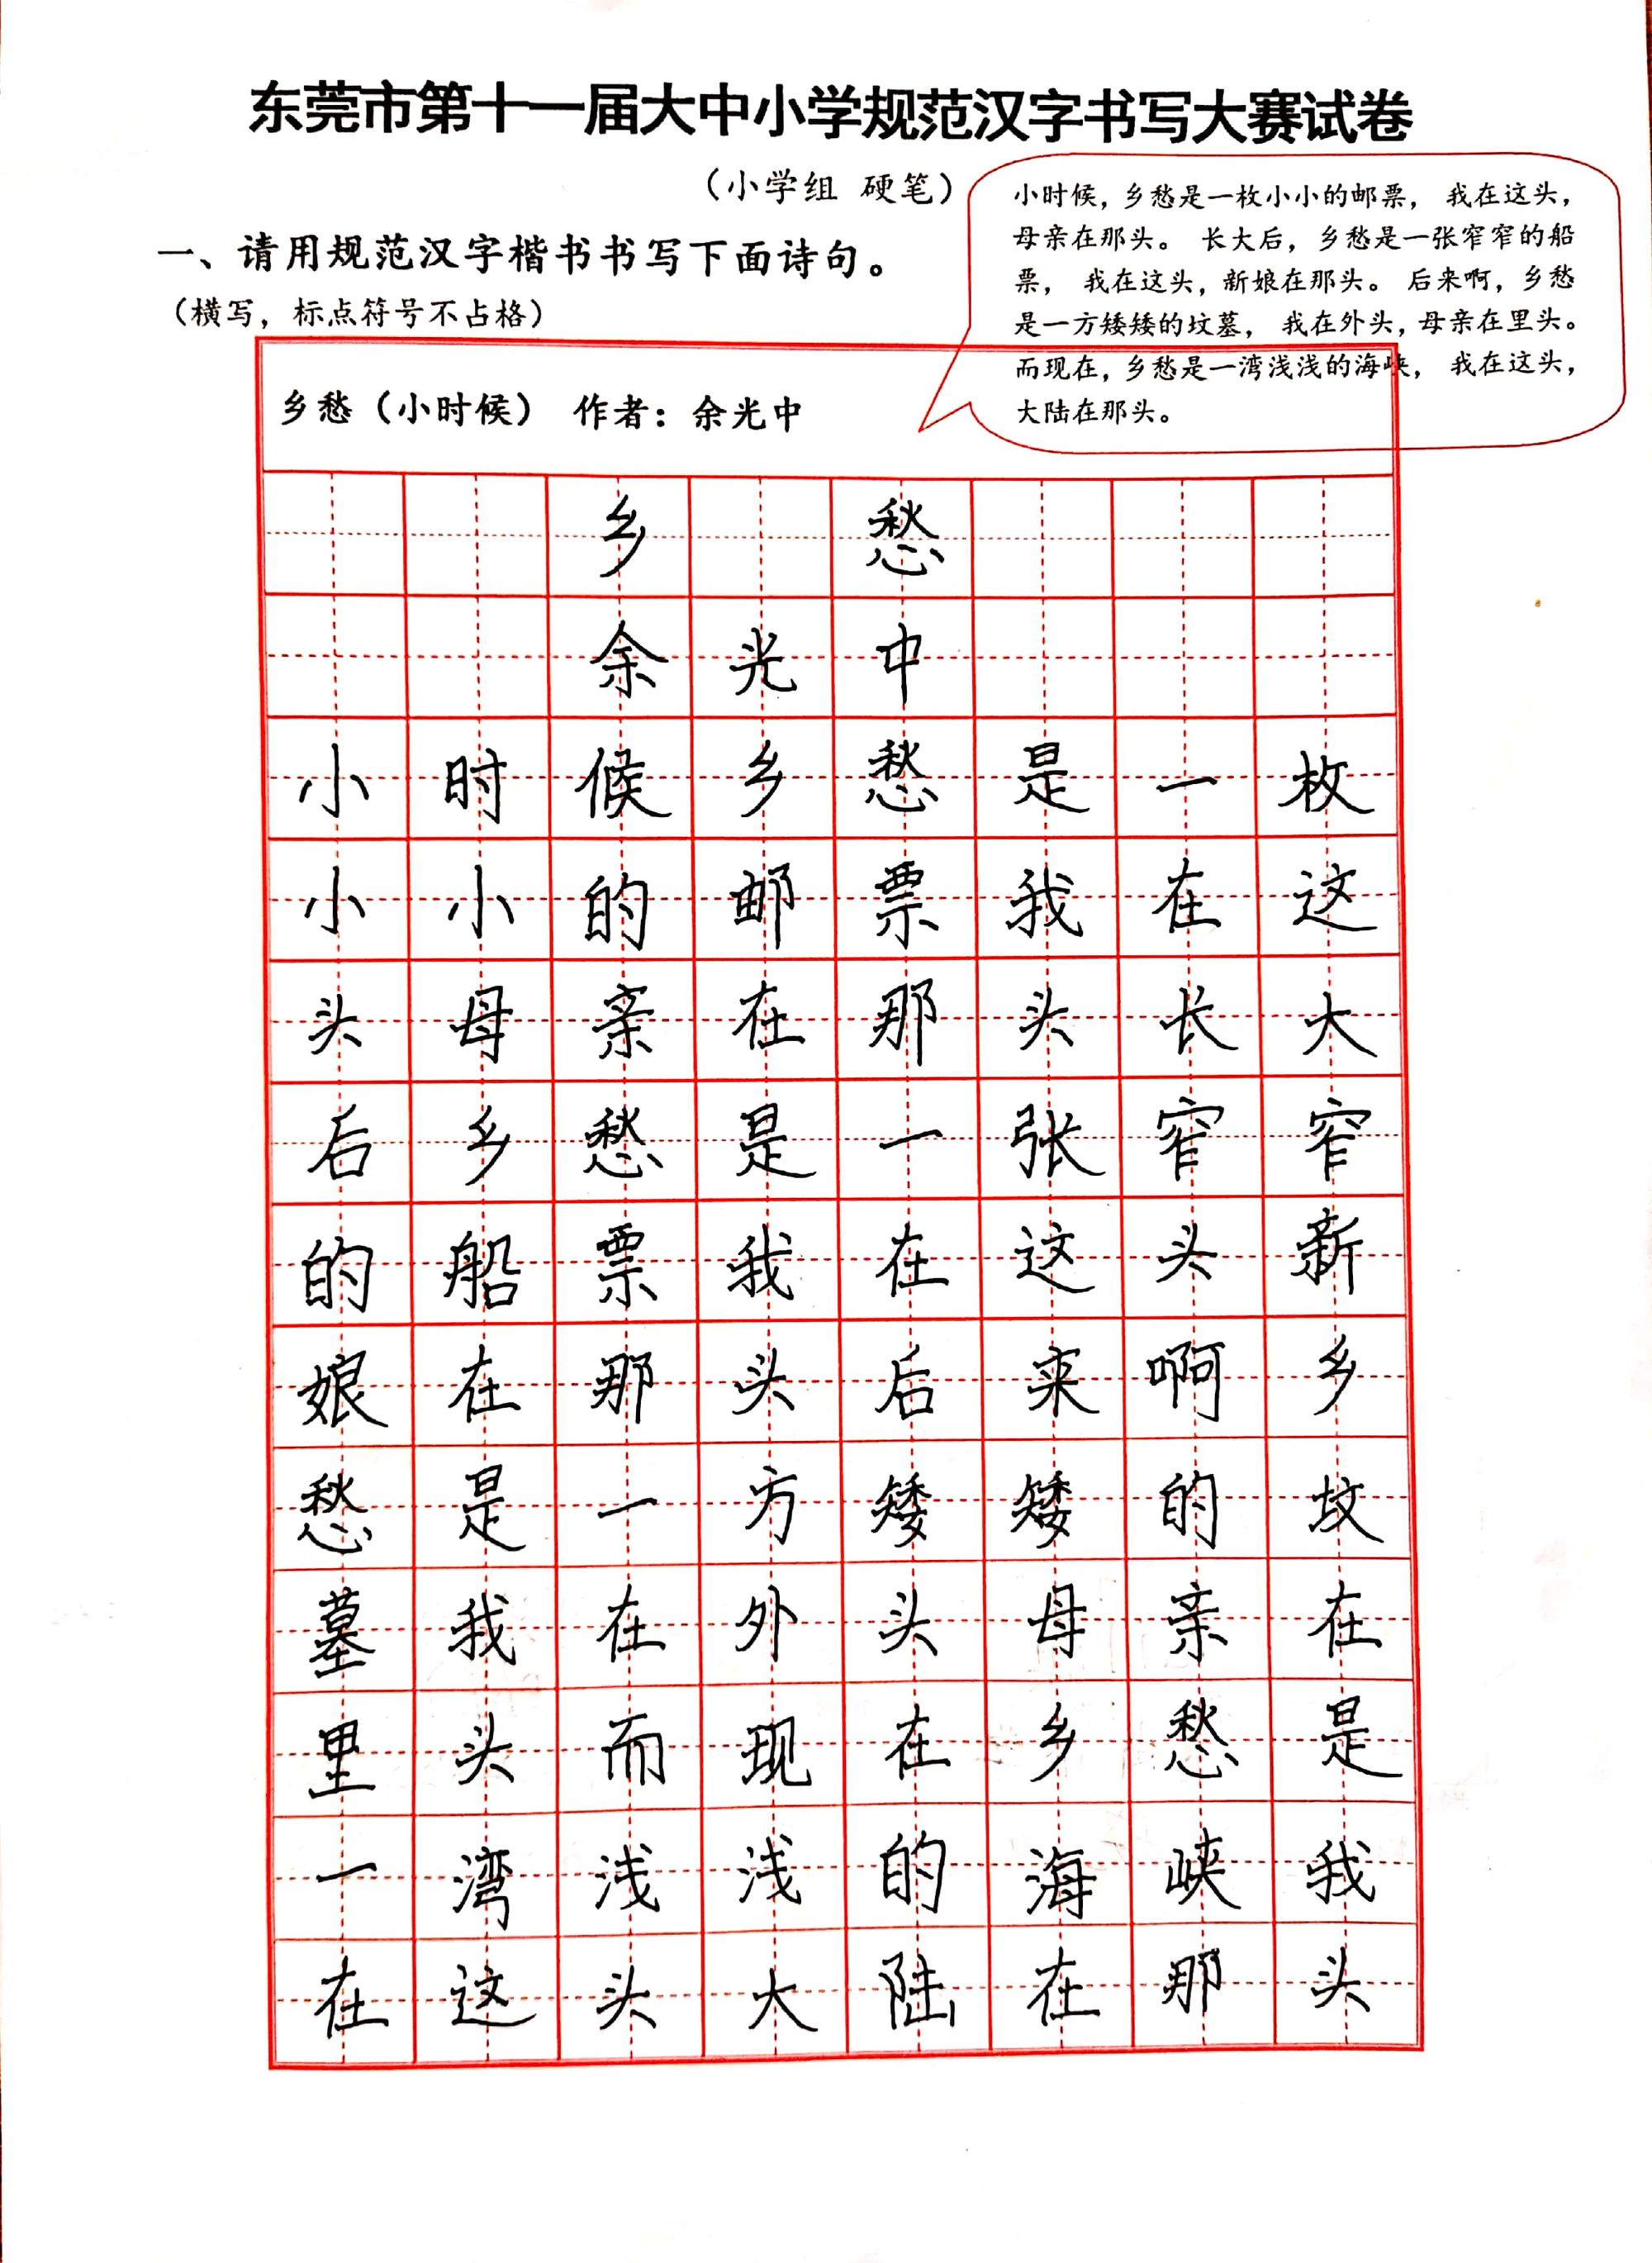 东莞市第十一届大中小学规范汉字书写大赛试卷
（小学组 硬笔）
小时候，乡愁是一枚小小的邮票， 我在这头，
母亲在那头。 长大后，乡愁是一张窄窄的船
票， 我在这头，新娘在那头。 后来啊，乡愁
是一方矮矮的坟墓， 我在外头，母亲在里头。
而现在，乡愁是一湾浅浅的海峡， 我在这头，
大陆在那头。
一、请用规范汉字楷书书写下面诗句。
（横写，标点符号不占格）
乡愁（小时候） 作者：余光中
乡愁
余光中
小时候乡愁是一枚
小小的邮票我在这
头母亲在那头长大
后乡愁是一张窄窄
的船票我在这头新
娘在那头后来啊乡
愁是一方矮矮的坟
墓我在外头母亲在
里头而现在乡愁是
一湾浅浅的海峡我
在这头大陆在那头